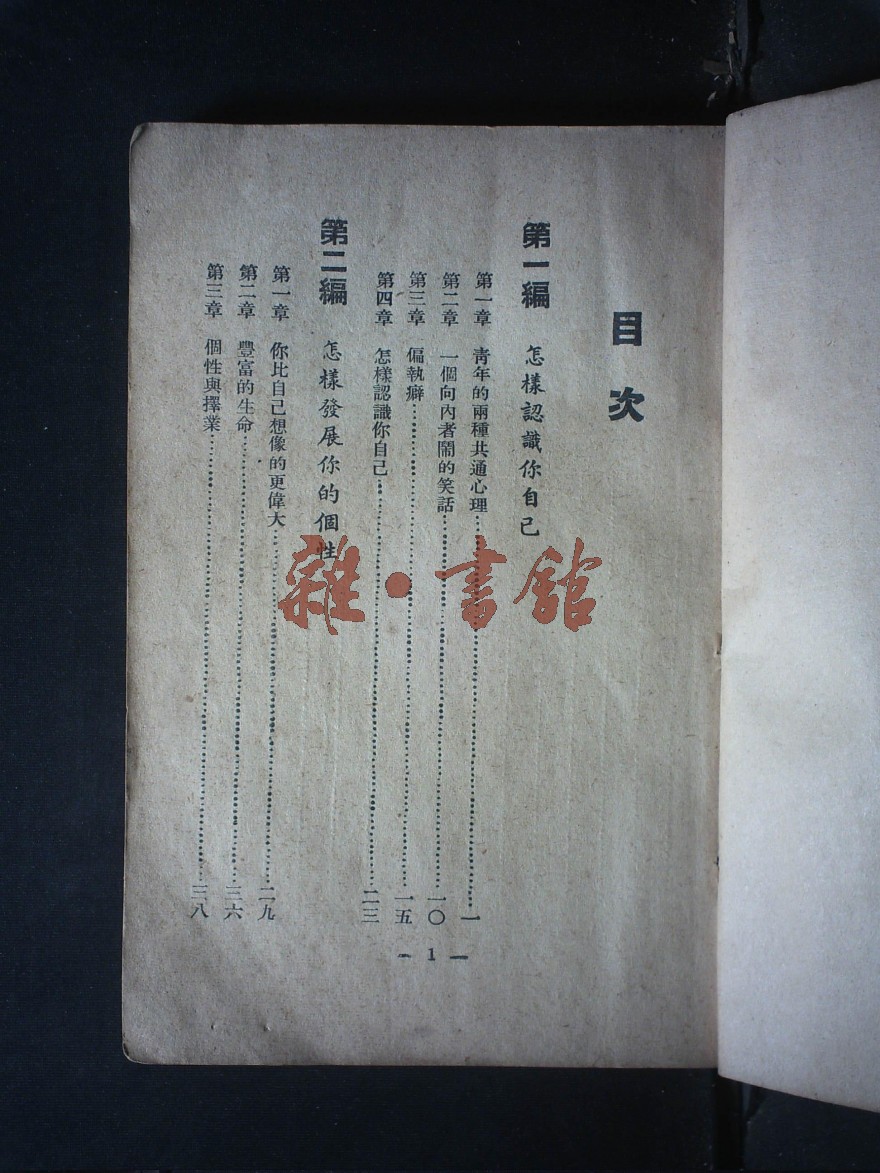 目次
第一編 怎樣認識你自己
第一章 青年的兩種共通心理……一
第二章 一個向內者鬧的笑話……一〇
第三章 偏執癖……一五
第四章 怎樣認識你自己……二三
第二編 怎樣發展你的個性
第一章 你比自己想像的更偉大……二九
第二章 豐富的生命……三六
第三章 個性與擇業……三八
— 1 —
雜·書館